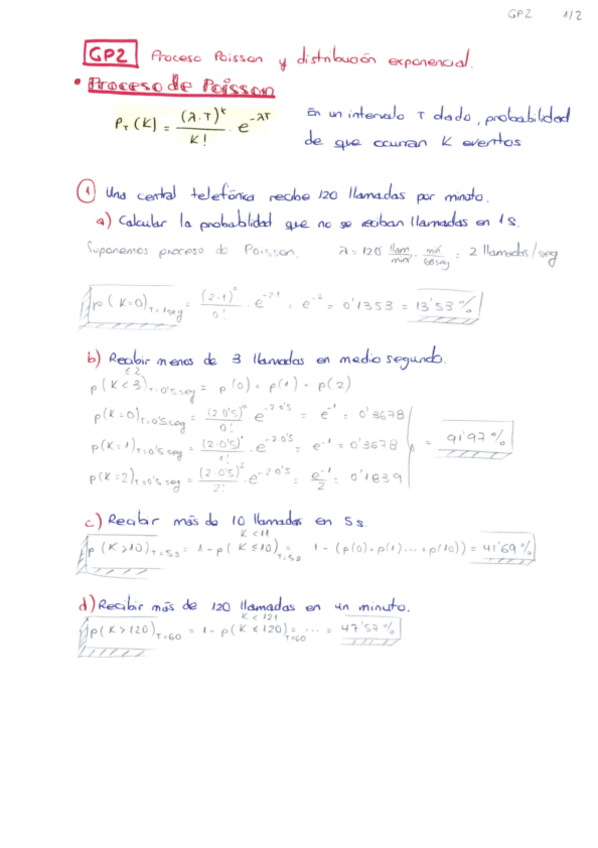 GP2 1/2
GP2 Proceso Poisson y distribución exponencial.
• Proceso de Poisson
P_T(K) = (λ·T)^K / K! · e^-λT
En un intervalo T dado, probabilidad
de que ocurran K eventos
1 Una central telefónica recibe 120 llamadas por minuto.
a) Calcular la probabilidad que no se reciban llamadas en 1s.
Suponemos proceso de Poisson. λ = 120 llam/min · min/60seg = 2 llamadas/seg
p(K=0)_T=1seg = (2·1)^0 / 0! · e^-2·1 = e^-2 = 0'1353 = 13'53%
b) Recibir menos de 3 llamadas en medio segundo.
≤2
p(K<3)_T=0'5seg = p(0) + p(1) + p(2)
p(K=0)_T=0'5seg = (2·0'5)^0 / 0! · e^-2·0'5 = e^-1 = 0'3678
p(K=1)_T=0'5seg = (2·0'5)^1 / 1! · e^-2·0'5 = e^-1 = 0'3678 = 91'97%
p(K=2)_T=0'5seg = (2·0'5)^2 / 2! · e^-2·0'5 = e^-1/2 = 0'1839
c) Recibir más de 10 llamadas en 5s.
K<11
p(K>10)_T=5s = 1 - p(K≤10)_T=5s = 1 - (p(0)+p(1)...+p(10)) = 41'69%
d) Recibir más de 120 llamadas en un minuto.
K<121
p(K>120)_T=60 = 1 - p(K≤120)_T=60 = ... = 47'57%